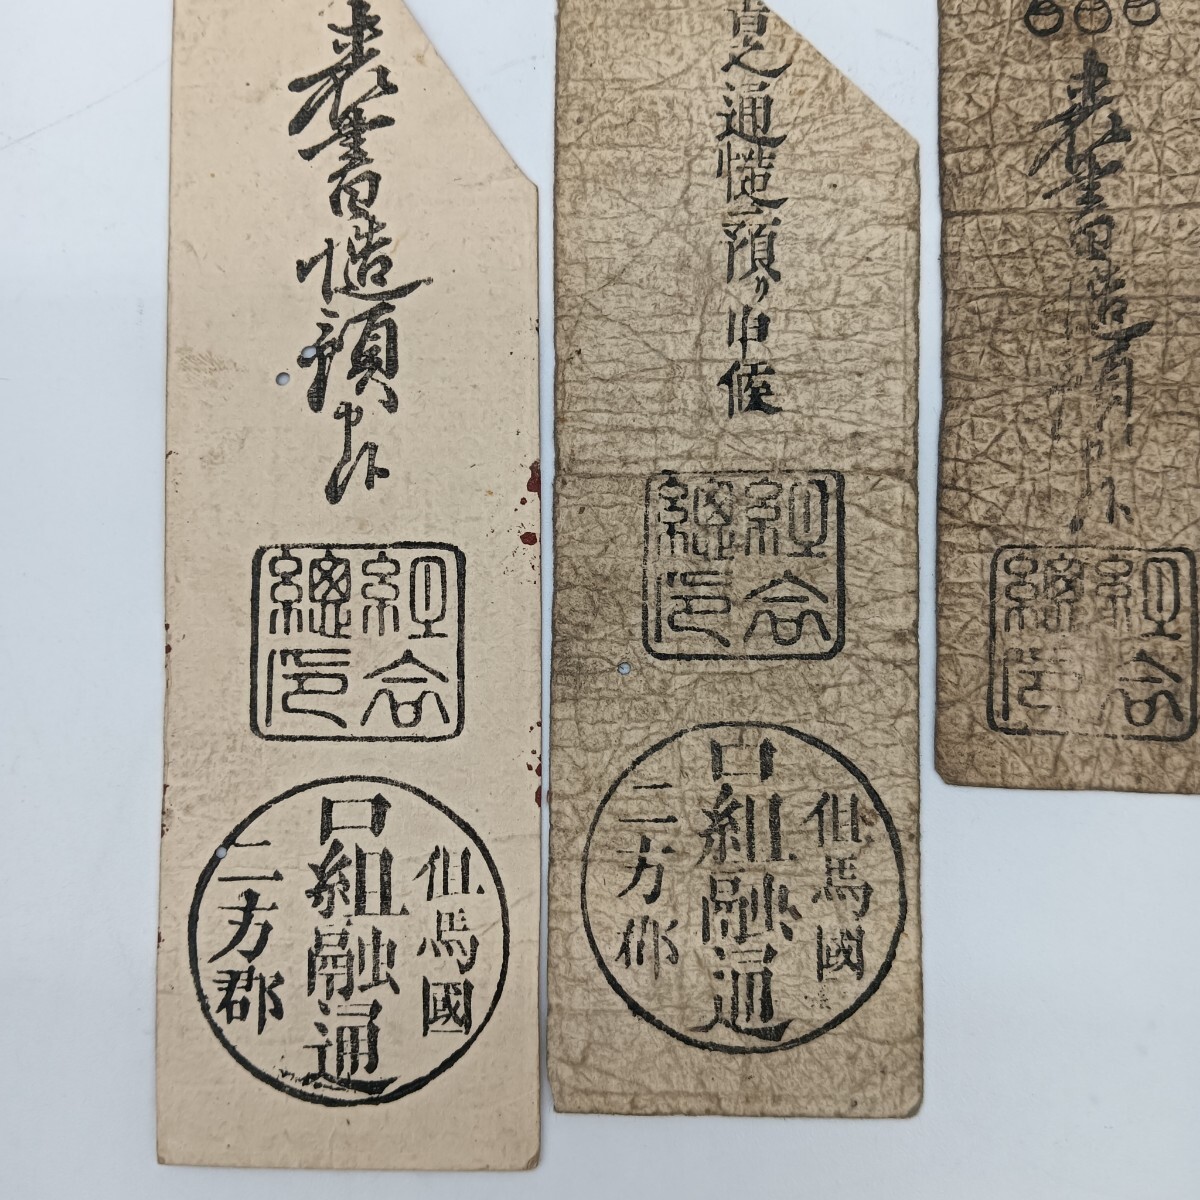 表書慥預申候
組合
總印
但馬國
口組融通
二方郡
通慥預り申候
組合
總印
但馬國
口組融通
二方郡
表書慥預申候
組合
總印